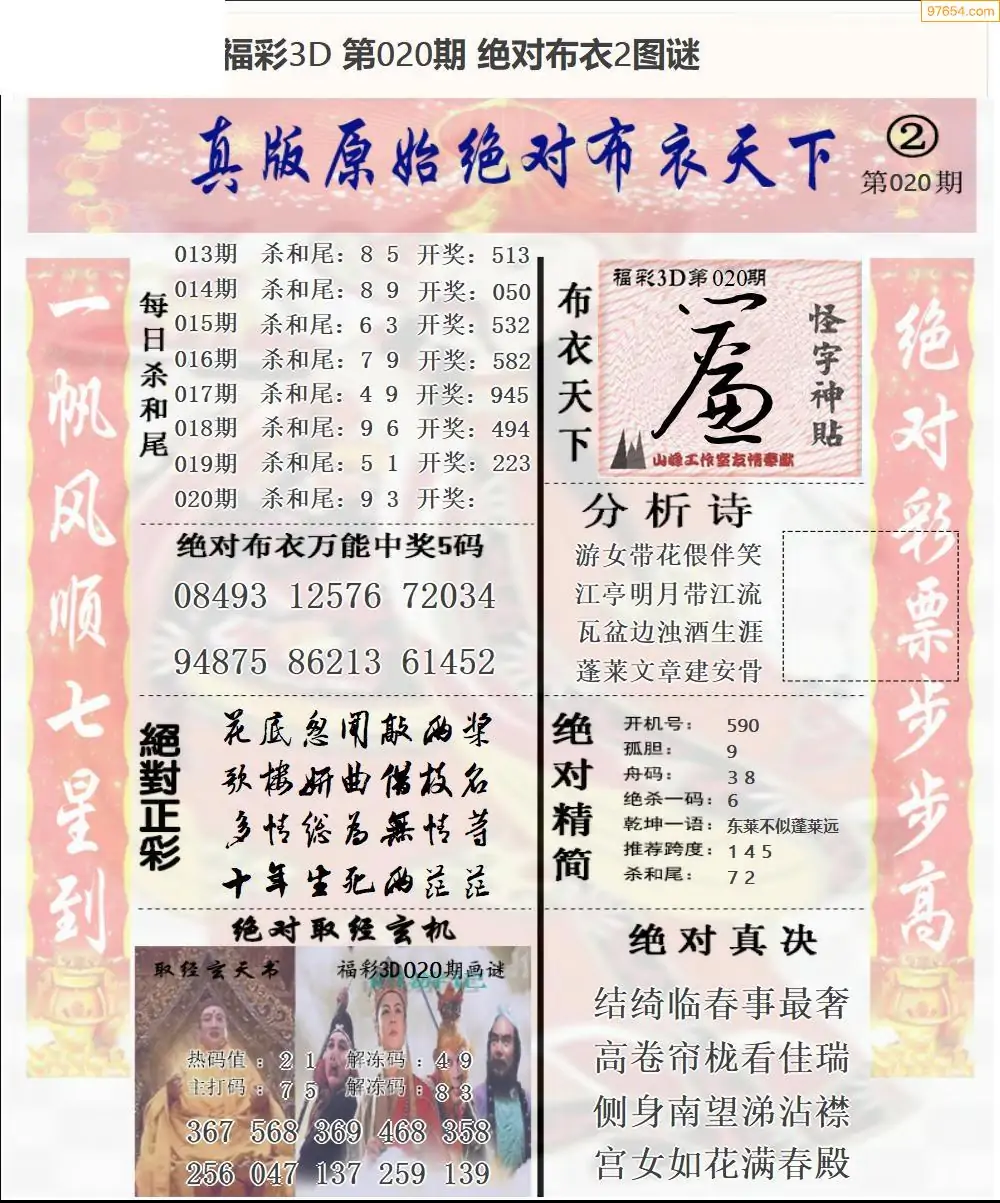 97654.com
福彩3D 第020期 绝对布衣2图谜
真版原始绝对布衣天下
②
第020期
一帆风顺七星到
每日杀和尾
013期 杀和尾：8 5 开奖：513
014期 杀和尾：8 9 开奖：050
015期 杀和尾：6 3 开奖：532
016期 杀和尾：7 9 开奖：582
017期 杀和尾：4 9 开奖：945
018期 杀和尾：9 6 开奖：494
019期 杀和尾：5 1 开奖：223
020期 杀和尾：9 3 开奖：
绝对布衣万能中奖5码
08493 12576 72034
94875 86213 61452
絕對正彩
花底忽闻敲两桨
歌楼妍曲借枝名
多情总为無情苦
十年生死两茫茫
绝对取经玄机
取经玄天书
福彩3D020期画谜
热码值：2 1 解冻码：4 9
主打码：7 5 解冻码：8 3
367 568 369 468 358
256 047 137 259 139
布衣天下
福彩3D第020期
怪字神貼
山峰工作室友情奉献
分析诗
游女带花偎伴笑
江亭明月带江流
瓦盆边浊酒生涯
蓬莱文章建安骨
绝对精简
开机号： 590
孤胆： 9
舟码： 3 8
绝杀一码：6
乾坤一语：东莱不似蓬莱远
推荐跨度：1 4 5
杀和尾： 7 2
绝对真决
结绮临春事最奢
高卷帘栊看佳瑞
侧身南望涕沾襟
宫女如花满春殿
绝对彩票步步高